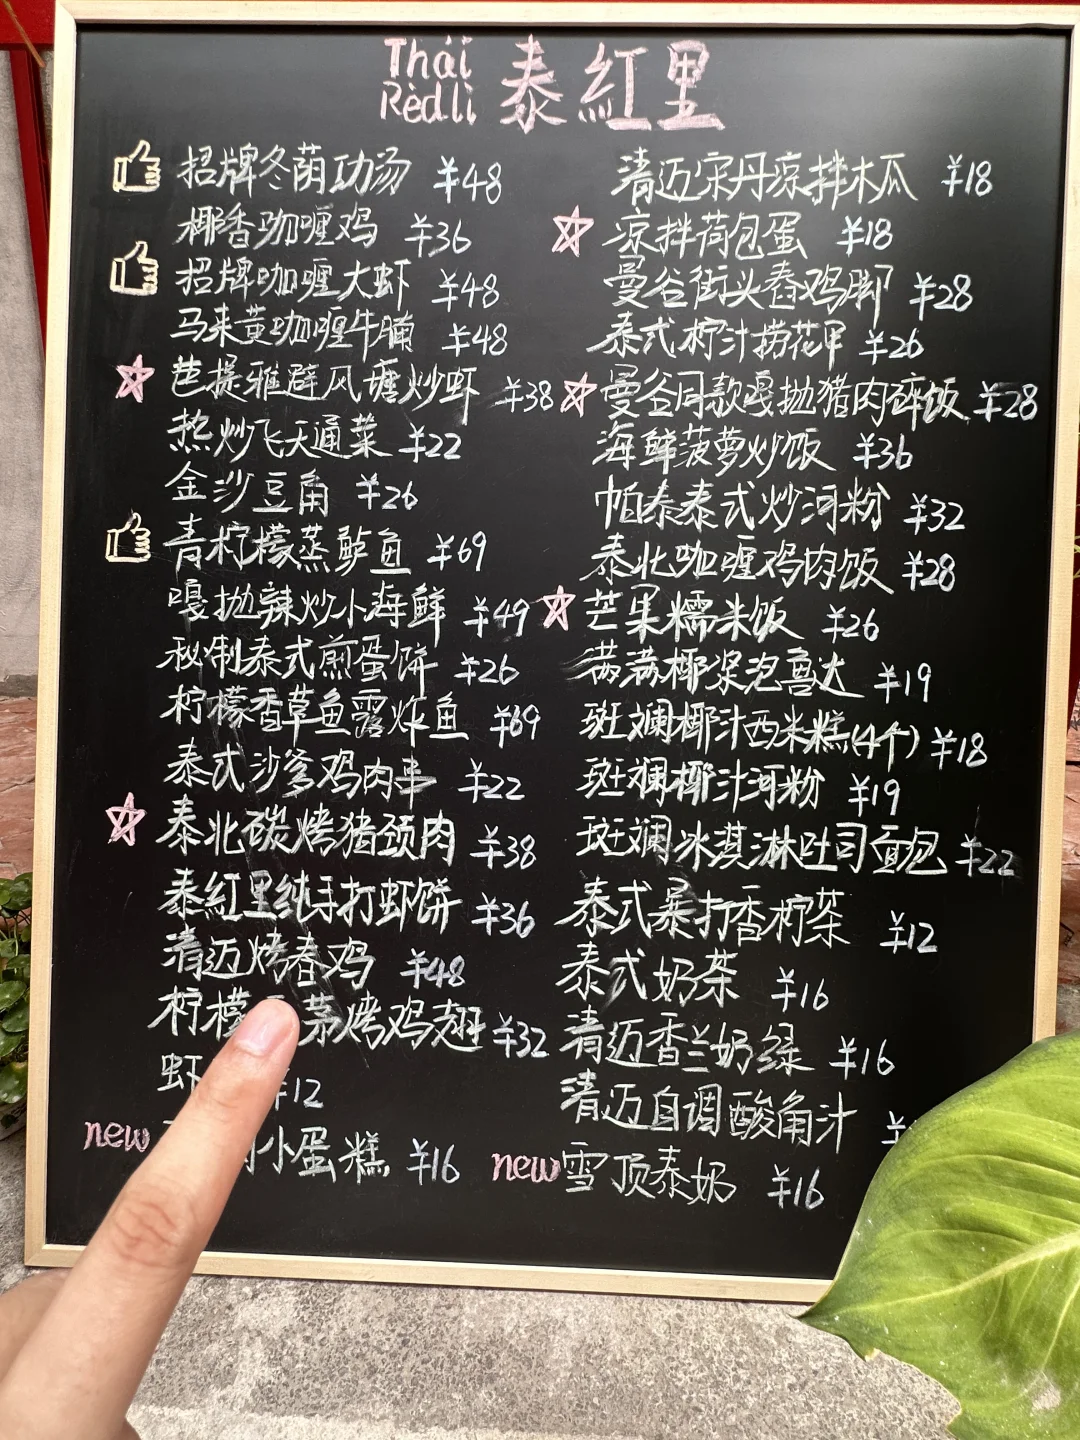 Thái Rèdlì 泰紅里
招牌冬荫功汤 ¥48
椰香咖喱鸡 ¥36
招牌咖喱大虾 ¥48
马来黄咖喱牛腩 ¥48
芭提雅避风塘炒虾 ¥38
热炒飞天通菜 ¥22
金沙豆角 ¥26
青柠檬蒸鲈鱼 ¥69
嘎抛辣炒小海鲜 ¥49
秘制泰式煎蛋饼 ¥26
柠檬香草鱼露炸鱼 ¥69
泰式沙爹鸡肉串 ¥22
泰北碳烤猪颈肉 ¥38
泰紅里纯手打虾饼 ¥36
清迈烤春鸡 ¥48
柠檬 茅烤鸡翅 ¥32
虾 ¥12
new 小蛋糕 ¥16
清迈宋丹凉拌木瓜 ¥18
凉拌荷包蛋 ¥18
曼谷街头舂鸡脚 ¥28
泰式柠汁捞花甲 ¥26
曼谷同款嘎抛猪肉碎饭 ¥28
海鲜菠萝炒饭 ¥36
帕泰泰式炒河粉 ¥32
泰北咖喱鸡肉饭 ¥28
芒果糯米饭 ¥26
满满椰浆泡鲁达 ¥19
斑斓椰汁西米糕(4个) ¥18
斑斓椰汁河粉 ¥19
斑斓冰淇淋吐司面包 ¥22
泰式暴打香柠茶 ¥12
泰式奶茶 ¥16
清迈香兰奶绿 ¥16
清迈自调酸角汁 ¥
new 雪顶泰奶 ¥16